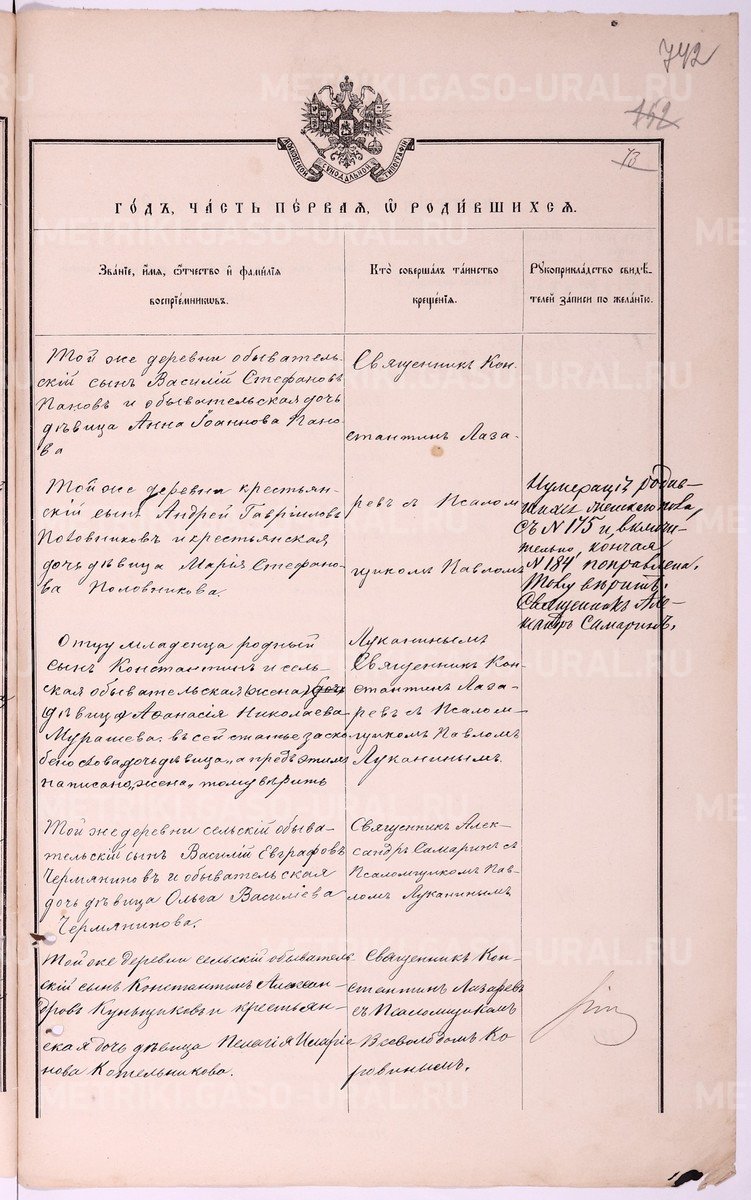 742
162
73
МОСКОВСКОЙ СѴНОДАЛЬНОЙ ТИПОГРАФІИ
ГО́ДЪ, ЧА́СТЬ ПЕ́РВАЯ, Ѿ РОДИ́ВШИХСЯ.
Зва́нїе, и҆́мя, ѻ҆́тчество и҆ фами́лїя
воспрїе́мникѡвъ.
Кто̀ соверша́лъ та́инство
креще́нїя.
Рꙋкоприкла́дство свидѣ́-
телей за́писи по жела́нїю.
Той же деревни обыватель-
скій сынъ Василій Стефановъ
Пановъ и обывательская дочь
дѣвица Анна Іоаннова Пано
ва
Священникъ Кон
стантинъ Лаза-
Той же деревни крестьян-
скій сынъ Андрей Гавріиловъ
Половниковъ и крестьянская
дочь дѣвица Марія Стефано-
ва Половникова.
ревъ съ Псалом
щикомъ Павломъ
Нумерація родив-
шихся женскаго пола,
съ N 175 и, включи-
тельно, кончая
N 184, поправлена.
Тому вѣрить.
Священникъ Але-
ксандръ Самаринъ.
Отцу младенца родный
сынъ Константинъ и сель-
ская обывательская (жена) дочь
дѣвица Аѳанасія Николаева
Мурашева. въ сей статьѣ заско
бено слова, дочь дѣвица, а предъ этимъ
написано, жена, тому вѣрить
Луканинымъ
Священникъ Кон-
стантинъ Лаза-
ревъ съ Псалом-
щикомъ Павломъ
Луканинымъ.
Той же деревни сельскій обыва-
тельскій сынъ Василій Евграфовъ
Чермяниновъ и обывательская
дочь дѣвица Ольга Василіева
Чермянинова.
Священникъ Алек-
сандръ Самаринъ съ
Псаломщикомъ Пав-
ломъ Луканинымъ
Той же деревни сельскій обыватель
скій сынъ Константинъ Алексан-
дровъ Куньщиковъ и крестьян-
ская дочь дѣвица Пелагія Иларіо
нова Котельникова.
Священникъ Кон-
стантинъ Лазаревъ
съ Псаломщикомъ
Всеволодомъ Ко
ровинымъ.
METRIKI.GASO-URAL.RU